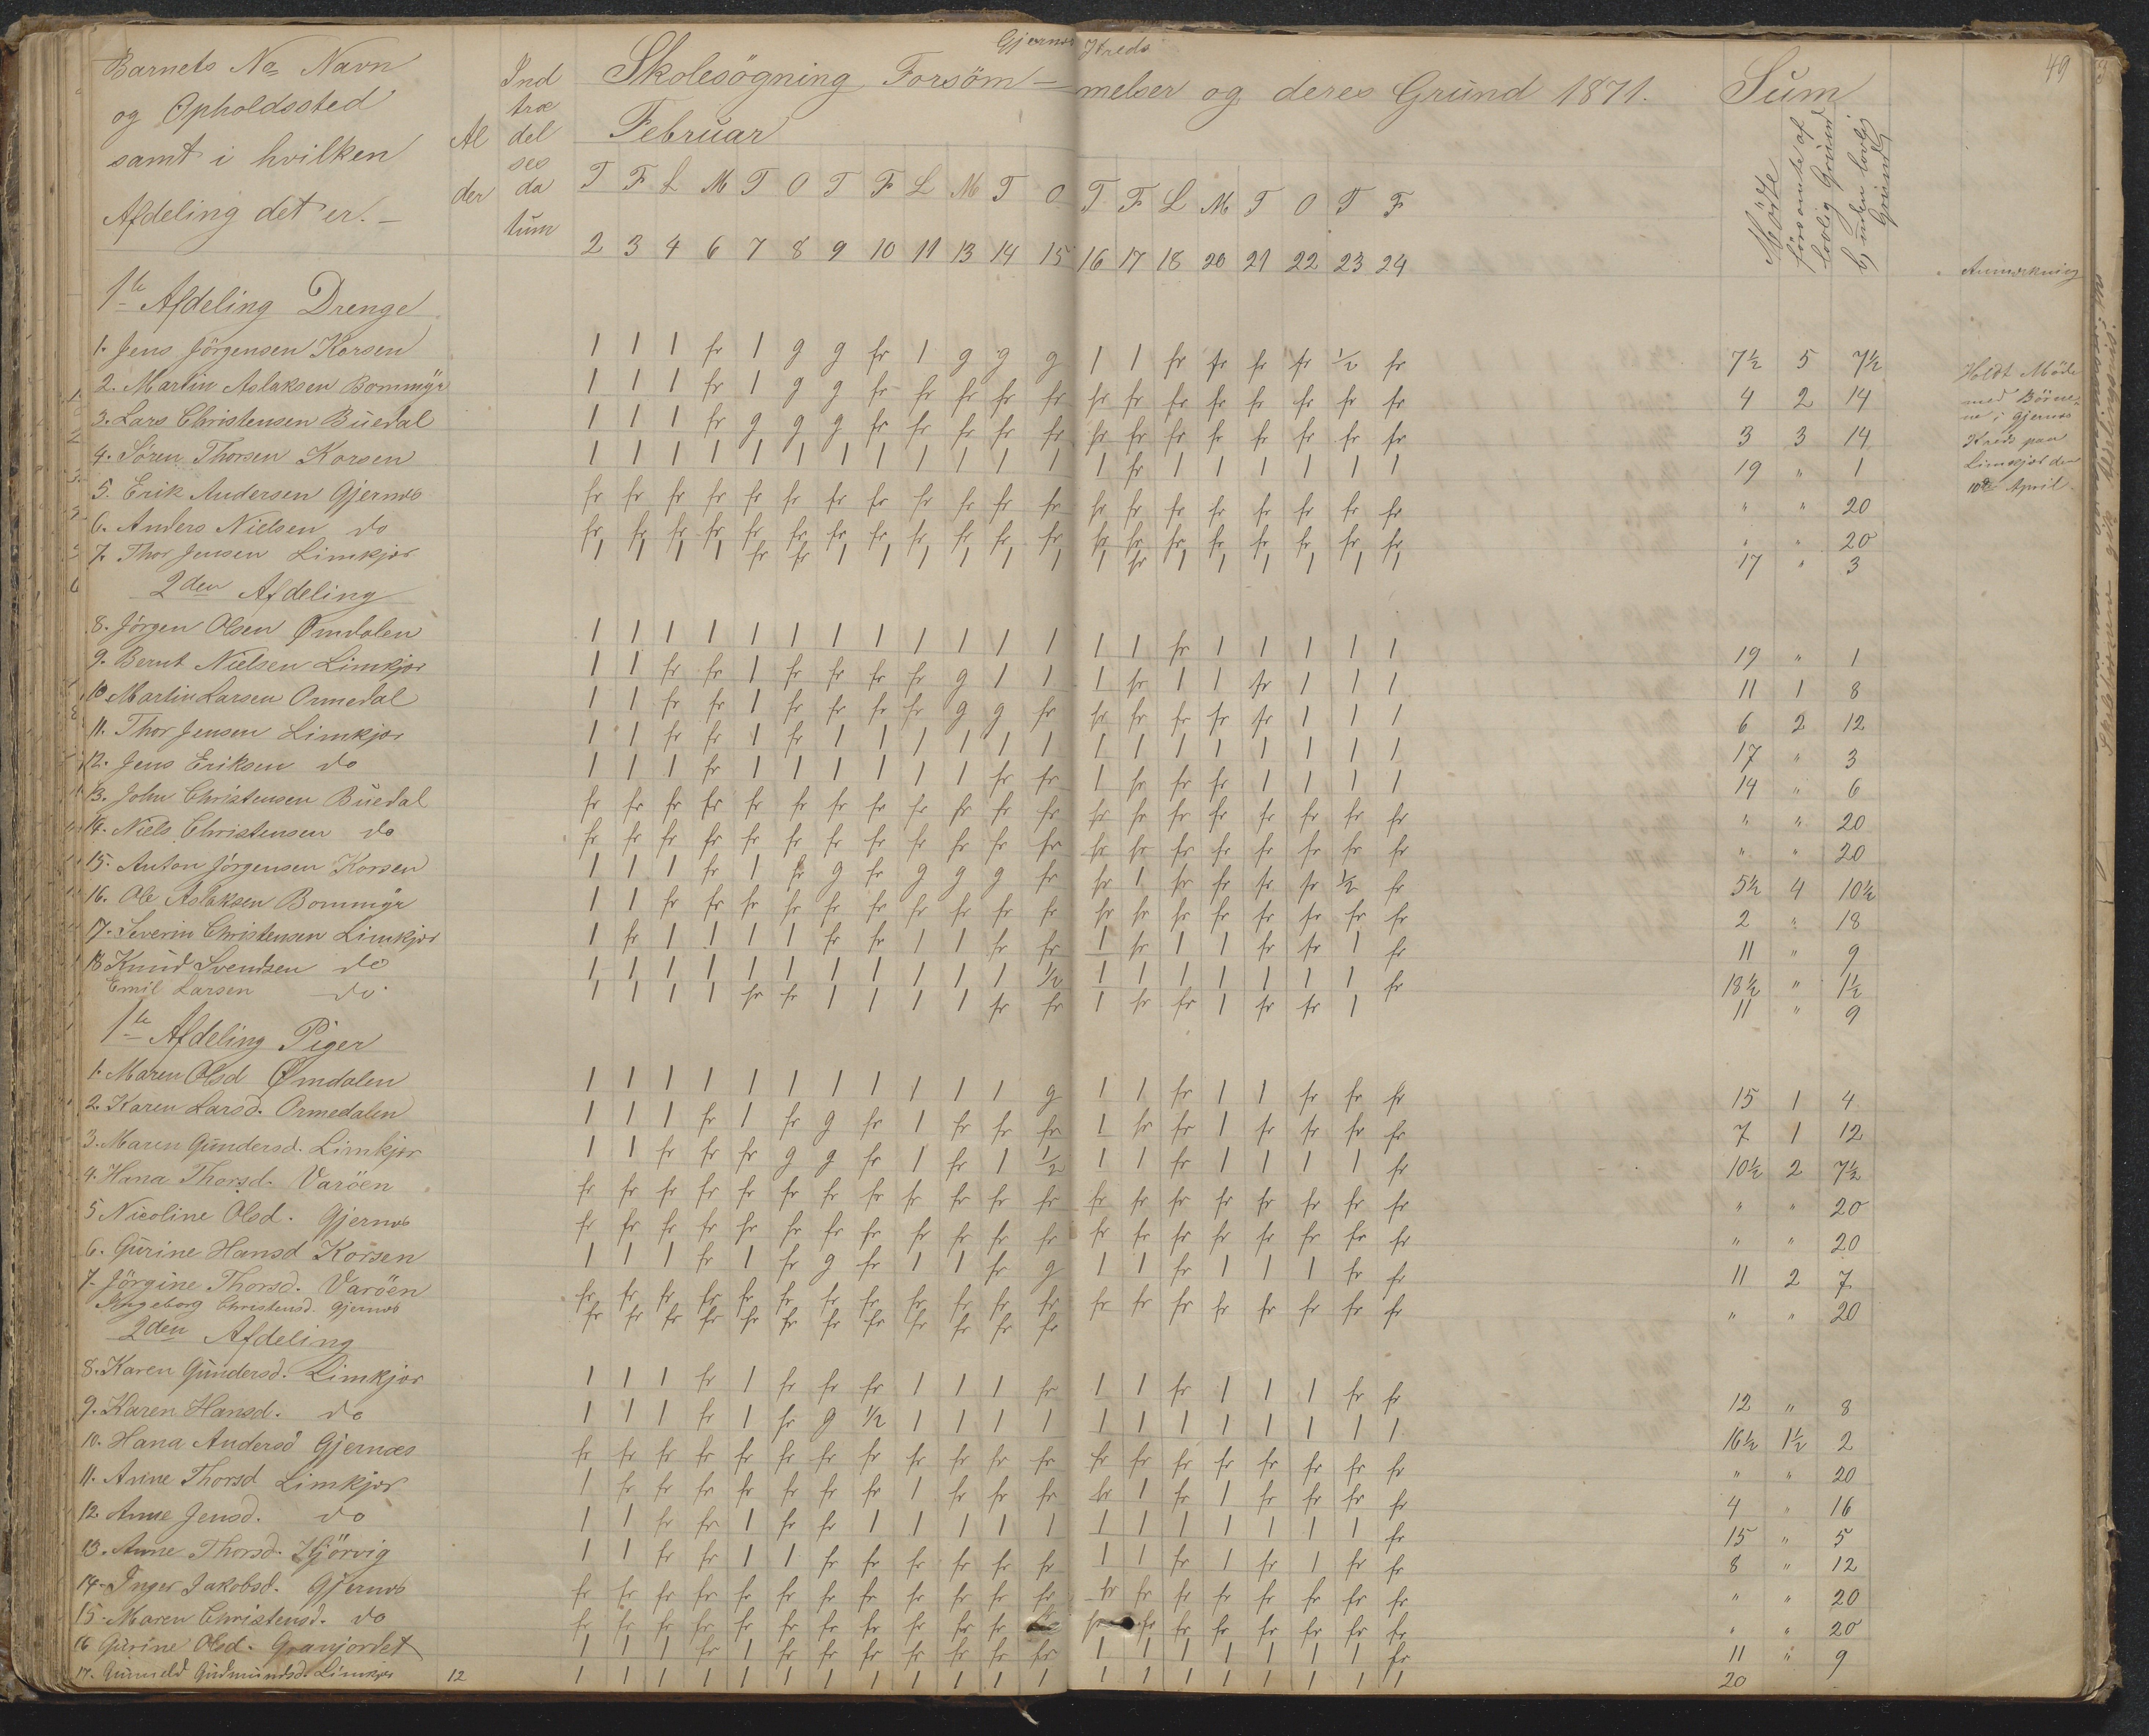 Gjernes Kreds
49
Barnets No Navn og Opholdssted samt i hvilken Afdeling det er. -
Alder
Indtrædelsesdatum
Skolesögning Forsöm- melser og deres Grund 1871.
Sum
Februar
T F L M T O T F L M T O T F L M T O T F
2 3 4 6 7 8 9 10 11 13 14 15 16 17 18 20 21 22 23 24
Mödte
forsömte af lovlig Grund
b, uden lovlig Grund
Anmærkning
1te Afdeling Drenge
1. Jens Jörgensen Korsen 1 1 1 fr 1 g g fr 1 g g g 1 1 fr fr fr fr ½ fr 7½ 5 7½
2. Martin Aslaksen Bommyr 1 1 1 fr 1 g g fr fr fr fr fr fr fr fr fr fr fr fr fr 4 2 14
3. Lars Christensen Buedal 1 1 1 fr g g g fr fr fr fr fr fr fr fr fr fr fr fr fr 3 3 14
4. Sören Thorsen Korsen 1 1 1 1 1 1 1 1 1 1 1 1 1 fr 1 1 1 1 1 1 19 " 1
5. Erik Andersen Gjernes fr fr fr fr fr fr fr fr fr fr fr fr fr fr fr fr fr fr fr fr " " 20
6. Anders Nielsen do fr fr fr fr fr fr fr fr fr fr fr fr fr fr fr fr fr fr fr fr " " 20
7. Thor Jensen Limkjær 1 1 1 1 fr fr 1 1 1 1 1 1 1 fr 1 1 1 1 1 1 17 " 3
Holdt Möde
med Börne-
ne i Gjernes
Kreds paa
Limkjær den
10de April.
2den Afdeling
8. Jörgen Olsen Ømdalen 1 1 1 1 1 1 1 1 1 1 1 1 1 1 fr 1 1 1 1 1 19 " 1
9. Bernt Nielsen Limkjær 1 1 fr fr 1 fr fr fr fr g 1 1 1 fr 1 1 fr 1 1 1 11 1 8
10. Martin Larsen Ormedal 1 1 fr fr 1 fr fr fr fr g g fr fr fr fr fr fr 1 1 1 6 2 12
11. Thor Jensen Limkjær 1 1 fr fr 1 fr 1 1 1 1 1 1 1 1 1 1 1 1 1 1 17 " 3
12. Jens Eriksen do 1 1 1 fr 1 1 1 1 1 1 fr fr 1 fr fr fr 1 1 1 1 14 " 6
13. John Christensen Buedal fr fr fr fr fr fr fr fr fr fr fr fr fr fr fr fr fr fr fr fr " " 20
14. Niels Christensen do fr fr fr fr fr fr fr fr fr fr fr fr fr fr fr fr fr fr fr fr " " 20
15. Anton Jörgensen Korsen 1 1 1 fr 1 fr g fr g g g fr fr 1 fr fr fr fr ½ fr 5½ 4 10½
16. Ole Aslaksen Bommyr 1 1 fr fr fr fr fr fr fr fr fr fr fr fr fr fr fr fr fr fr 2 " 18
17. Severin Christensen Limkjær 1 fr 1 1 1 1 fr fr 1 1 fr fr 1 fr 1 1 fr fr 1 fr 11 " 9
18 Knud Svendsen do 1 1 1 1 1 1 1 1 1 1 1 ½ 1 1 1 1 1 1 1 fr 18½ " 1½
Emil Larsen do 1 1 1 1 fr fr 1 1 1 1 fr fr 1 fr fr 1 fr fr 1 11 " 9
1te Afdeling Piger
1. Maren Olsd Ømdalen 1 1 1 1 1 1 1 1 1 1 1 g 1 1 fr 1 1 fr fr fr 15 1 4
2. Karen Larsd. Ormedalen 1 1 1 fr 1 fr g fr 1 fr fr fr 1 fr fr 1 fr fr fr fr 7 1 12
3. Maren Gundersd. Limkjær 1 1 fr fr fr g g fr 1 fr 1 ½ 1 1 fr 1 1 1 1 fr 10½ 2 7½
4. Hana Thorsd. Varöen fr fr fr fr fr fr fr fr fr fr fr fr fr fr fr fr fr fr fr fr " " 20
5 Nicoline Olsd. Gjernes fr fr fr fr fr fr fr fr fr fr fr fr fr fr fr fr fr fr fr fr " " 20
6. Gurine Hansd Korsen 1 1 1 fr 1 fr g fr 1 1 fr g 1 1 fr 1 1 1 fr fr 11 2 7
7. Jörgine Thorsd. Varöen fr fr fr fr fr fr fr fr fr fr fr fr fr fr fr fr fr fr fr fr " " 20
Ingeborg Christensd. Gjernes fr fr fr fr fr fr fr fr fr fr fr fr
2den Afdeling
8. Karen Gundersd. Limkjær 1 1 1 fr 1 fr fr fr 1 1 1 fr 1 1 fr 1 1 1 fr fr 12 " 8
9. Karen Hansd. do 1 1 1 fr 1 fr g ½ 1 1 1 1 1 1 1 1 1 1 1 1 16½ 1½ 2
10. Hana Andersd Gjernæs fr fr fr fr fr fr fr fr fr fr fr fr fr fr fr fr fr fr fr fr " " 20
11. Anne Thorsd Limkjær 1 fr fr fr fr fr fr fr 1 fr fr fr fr 1 fr 1 fr fr fr fr 4 " 16
12. Anne Jensd. do 1 1 fr fr 1 fr fr 1 1 1 1 1 1 1 1 1 1 1 1 fr 15 " 5
13. Anne Thorsd. Kjörvig 1 1 fr fr 1 1 fr fr fr fr fr fr 1 1 fr 1 fr 1 fr fr 8 " 12
14. Inger Jakobsd. Gjernes fr fr fr fr fr fr fr fr fr fr fr fr fr fr fr fr fr fr fr fr " " 20
15. Maren Christensd. do fr fr fr fr fr fr fr fr fr fr fr fr fr fr fr fr fr fr fr " " 20
16 Gurine Olsd. Granjordet 1 1 1 fr 1 fr fr fr fr fr fr fr 1 1 1 1 1 1 1 fr 11 " 9
17. Gunneld Gudmundsd. Limkjær 12 1 1 1 1 1 1 1 1 1 1 1 1 1 1 1 1 1 1 1 1 20